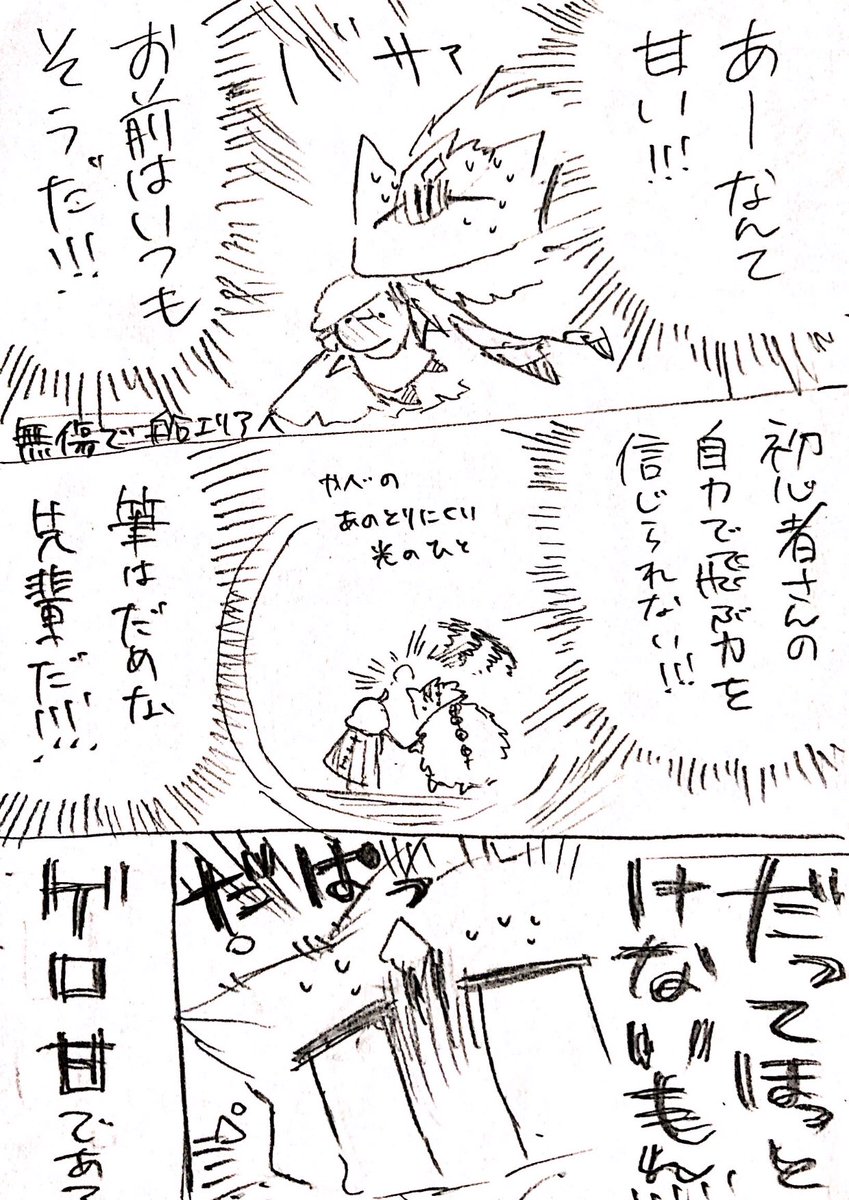 あーなんて
甘い!!!
バサァ
お前はいつも
そうだ!!!
無傷で船エリアへ
初心者さんの
自力で飛ぶ力を
信じられない!!!
かべの
あのとりにくい
光のひと
筆はだめな
先輩だ!!!!
だってほっと
けないもん
だばっ
ゲロ甘であ